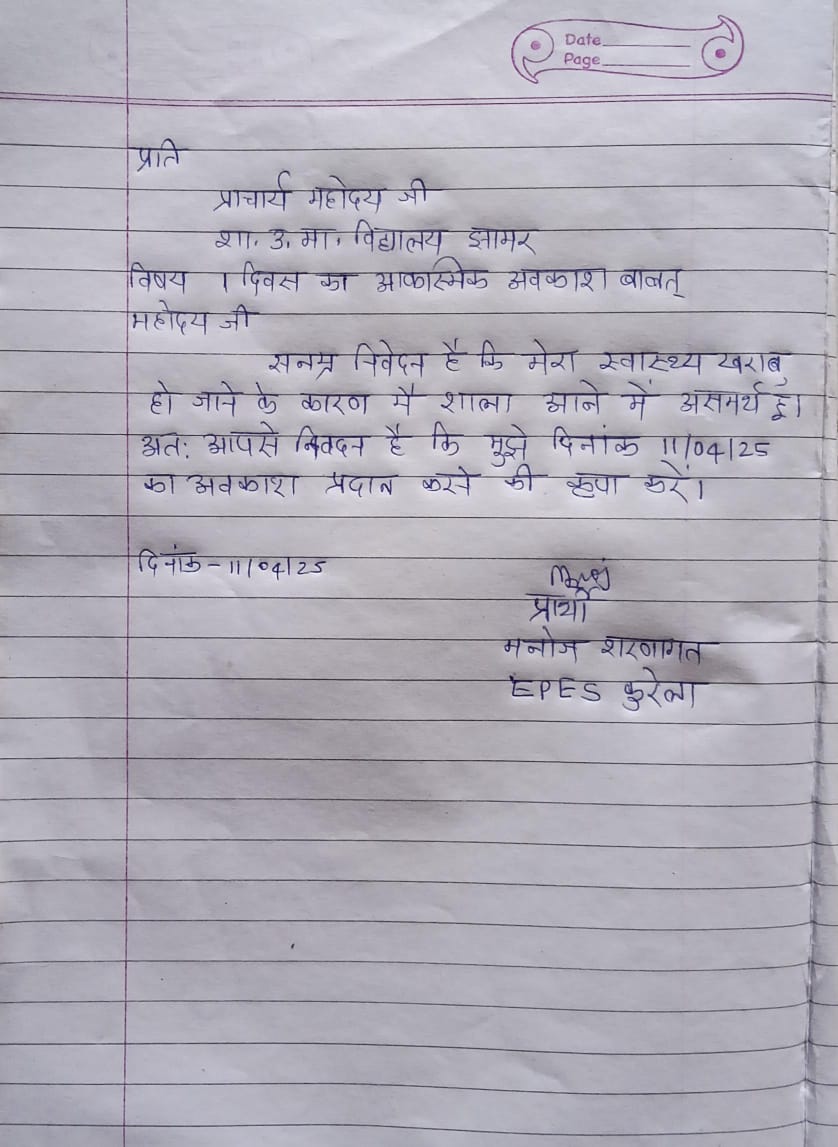 Date
Page
प्रति
प्राचार्य महोदय जी
शा. उ. मा. विद्यालय झामर
विषय 1 दिवस का आकास्मिक अवकाश बाबत्
महोदय जी
सनम्र निवेदन है कि मेरा स्वास्थ्य खराब
हो जाने के कारण मै शाला आने में असमर्थ हूं।
अतः आपसे निवेदन है कि मुझे दिनांक 11/04/25
का अवकाश प्रदान करने की कृपा करें।
दिनांक - 11/04/25
प्रार्थी
मनोज शरणागत
EPES कुरेला